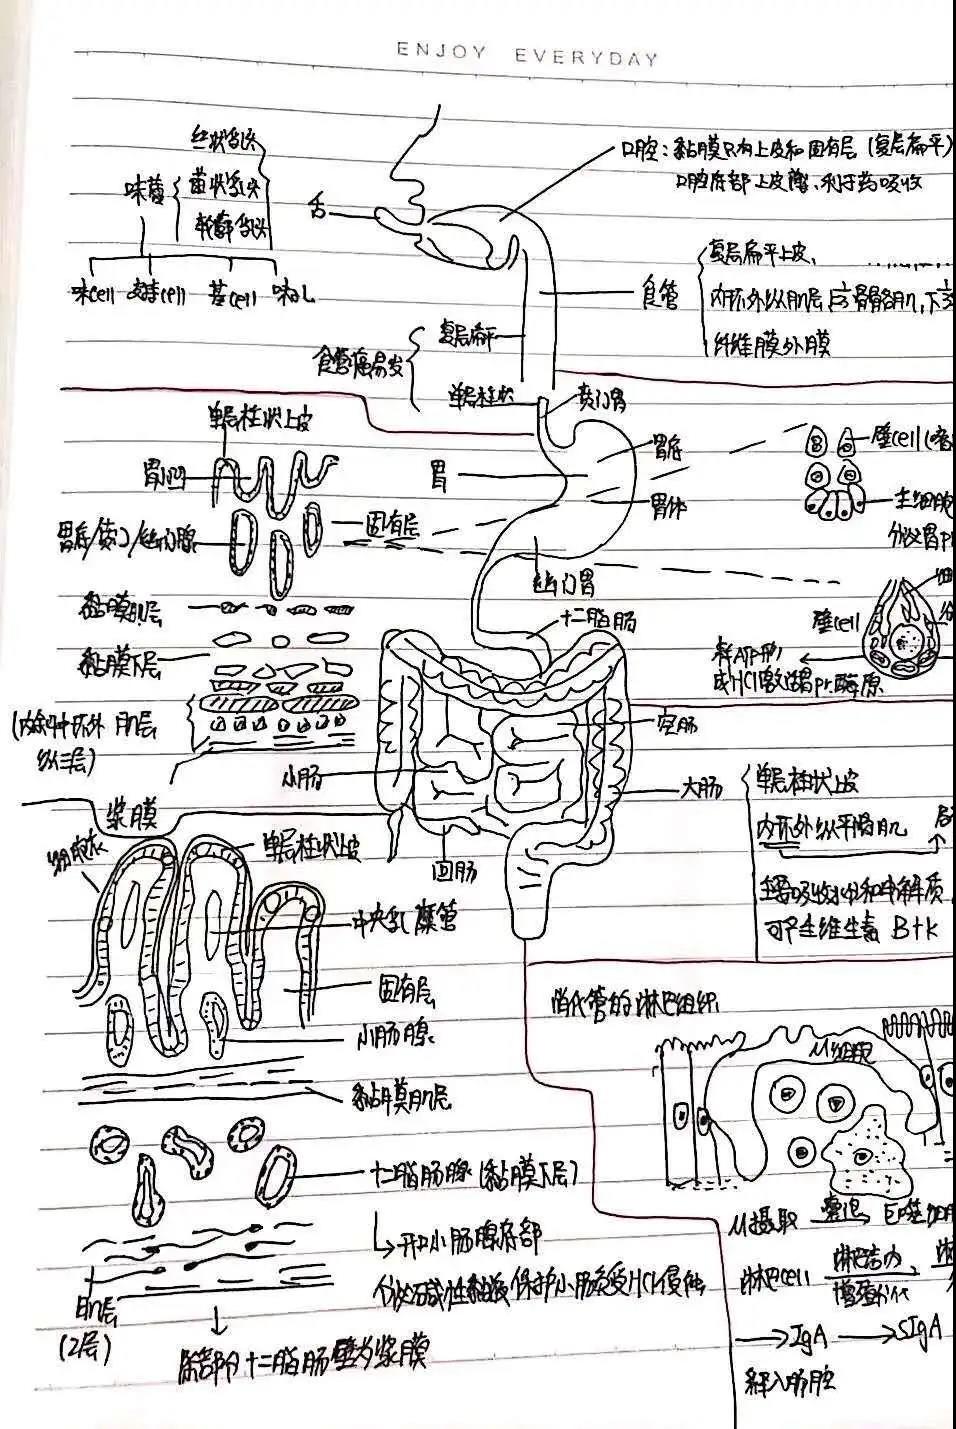 ENJOY EVERYDAY
丝状乳头
味蕾
菌状乳头
轮廓乳头
舌
味cell 支持cell 基cell 味孔
口腔：黏膜只有上皮和固有层（复层扁平）
口腔底部上皮薄、利于药吸收
食管
复层扁平上皮、
内环外纵肌层,
骨骼肌,下
纤维膜外膜
食管癌易发
复层扁平
单层柱状
贲门胃
单层柱状上皮
胃小凹
胃底/贲门/幽门腺
固有层
黏膜肌层
黏膜下层
(内斜中环外
肌层
纵三层)
浆膜
胃
胃底
胃体
幽门胃
十二指肠
壁cell
主细胞
分泌胃
壁cell
成HCl激活胃pr酶原
小肠
空肠
大肠
回肠
单层柱状上皮
内环外纵平滑肌
主要吸收水分和电解质
可产生维生素 B+K
单层柱状上皮
中央乳糜管
固有层
小肠腺
黏膜肌层
十二指肠腺(黏膜下层)
→开口小肠腺底部
分泌碱性黏液保护小肠免受HCl侵蚀
肌层
(2层)
部分十二指肠壁为浆膜
消化管的淋巴组织
M细胞
M摄取
囊泡
巨噬
淋巴cell
淋巴结内
增殖分化
→IgA →SIgA
释入肠腔